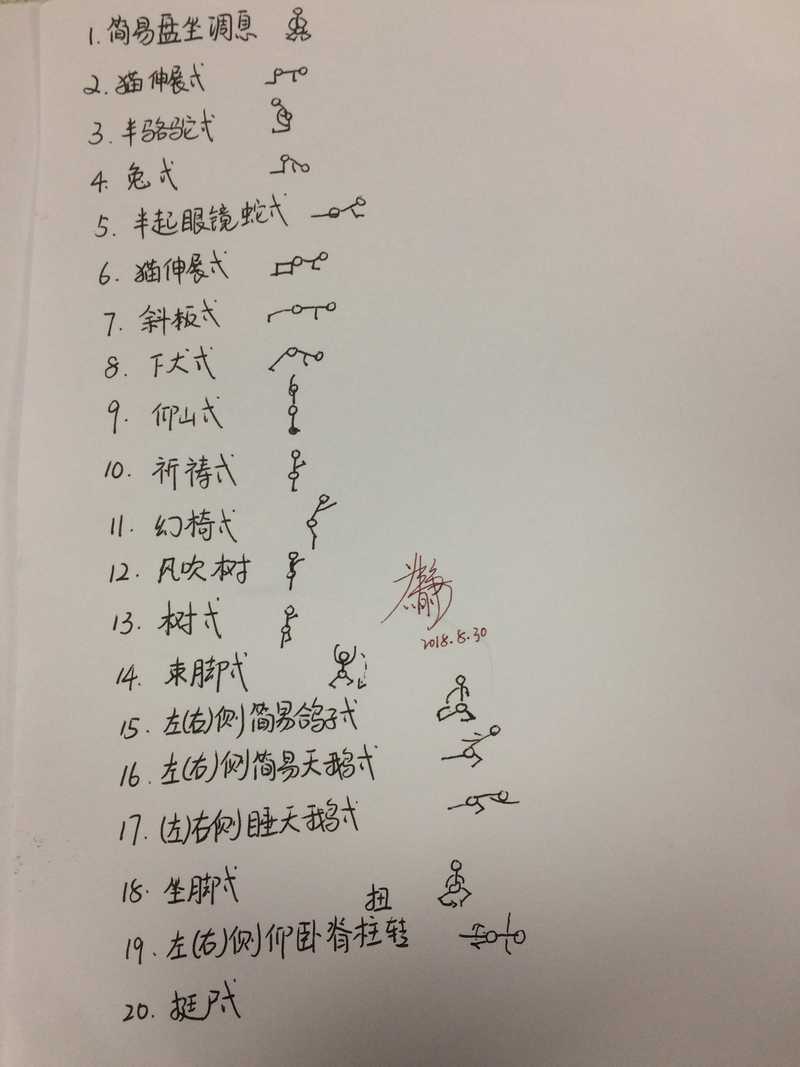 1. 简易盘坐调息
2. 猫伸展式
3. 半骆驼式
4. 兔式
5. 半起眼镜蛇式
6. 猫伸展式
7. 斜板式
8. 下犬式
9. 仰山式
10. 祈祷式
11. 幻椅式
12. 风吹树
13. 树式
2018.8.30
14. 束脚式
15. 左(右)侧简易鸽子式
16. 左(右)侧简易天鹅式
17. (左)右侧睡天鹅式
18. 坐脚式
扭
19. 左(右)侧仰卧脊柱转
20. 挺尸式